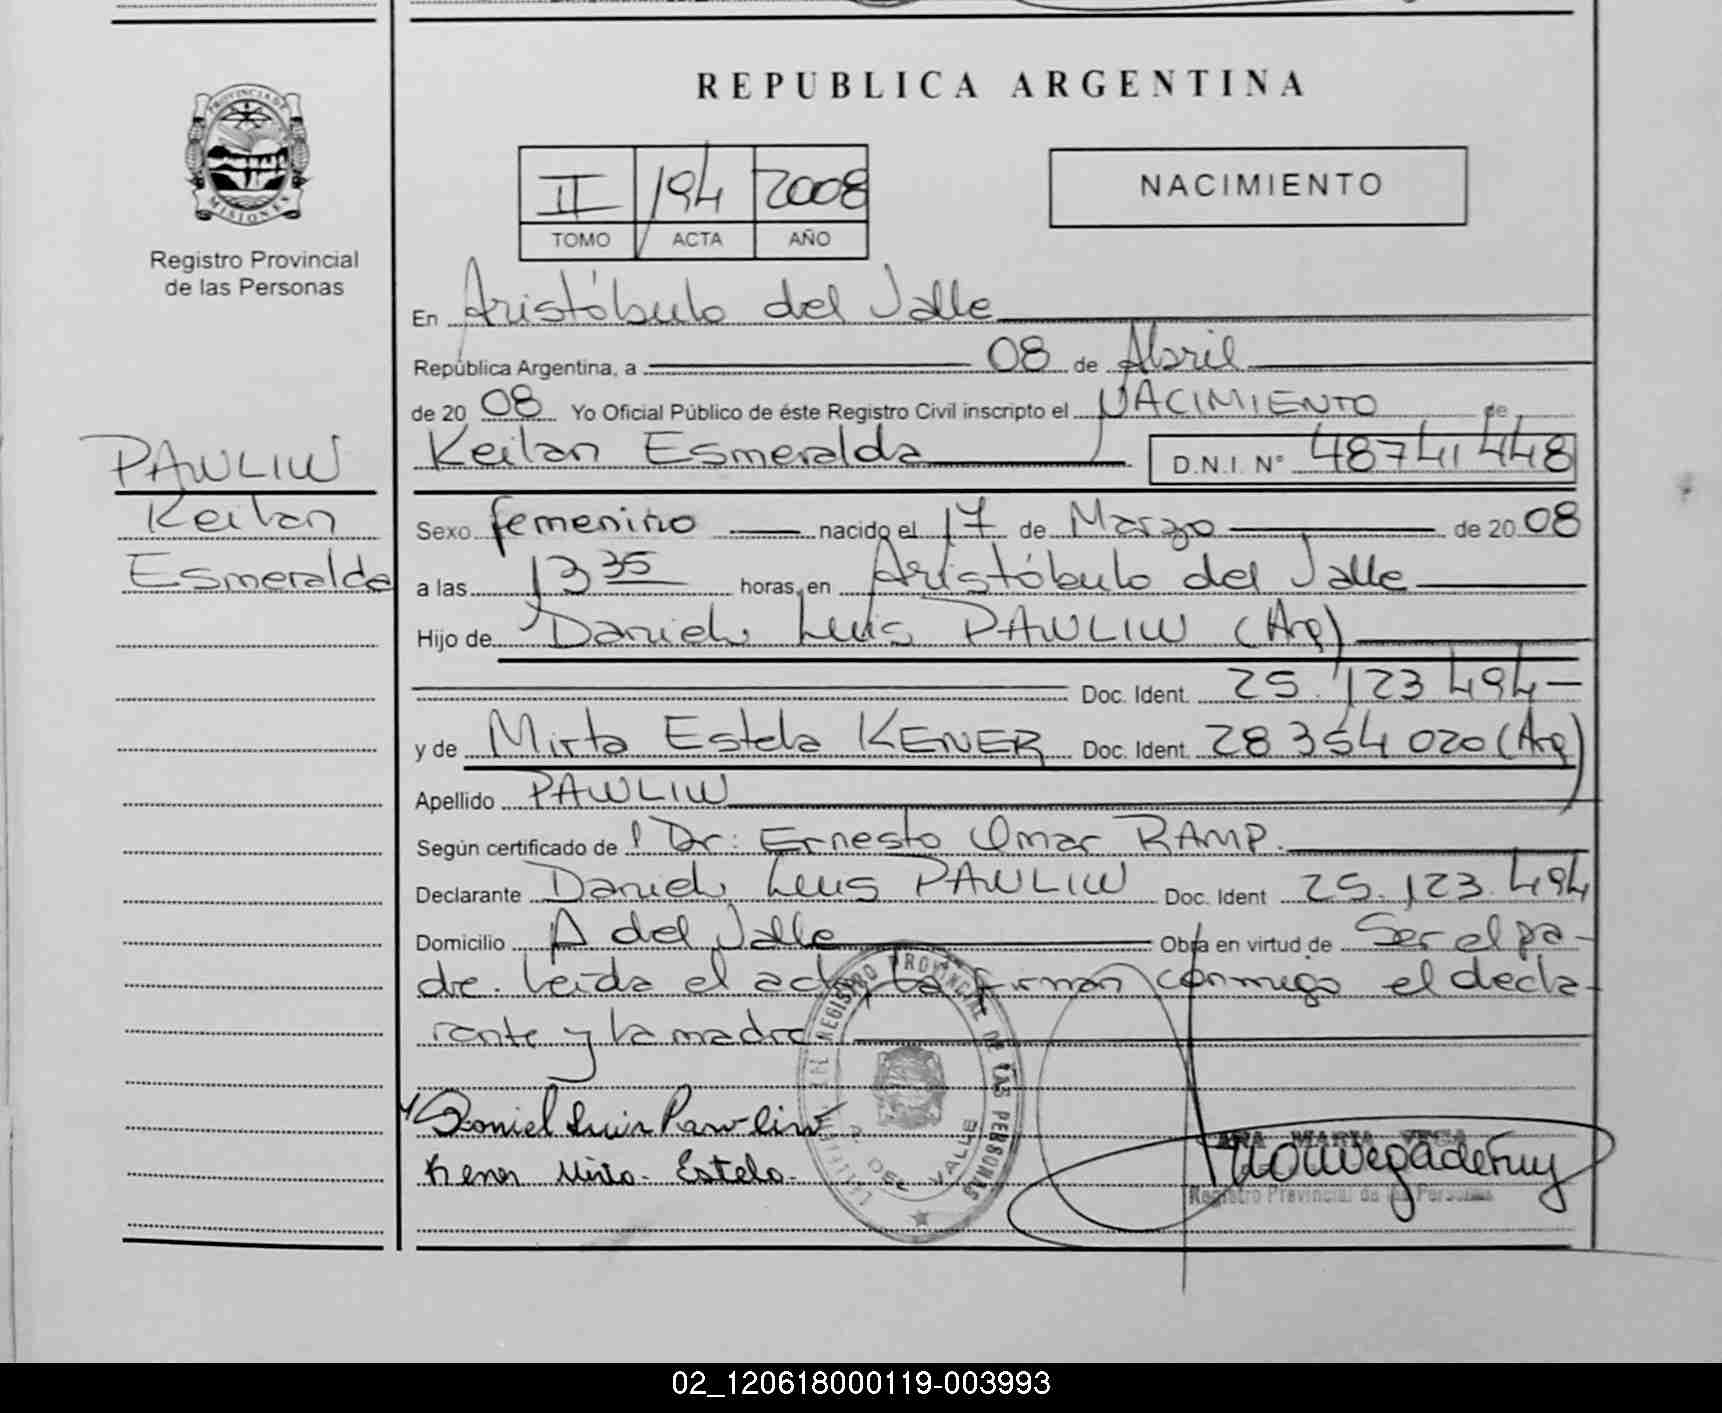 REPUBLICA ARGENTINA
PROVINCIA DE
MISIONES
Registro Provincial
de las Personas
II 194 2008
TOMO ACTA AÑO
NACIMIENTO
En Aristóbulo del Valle
República Argentina, a 08 de Abril
de 20 08 Yo Oficial Público de éste Registro Civil inscripto el NACIMIENTO de
Keilan Esmeralda D.N.I. N° 48741448
PAWLIW
Keilan
Esmeralda
Sexo femenino nacido el 17 de Marzo de 20 08
a las 13 35 horas, en Aristóbulo del Valle
Hijo de Daniel Luis PAWLIW (Arg)
Doc. Ident. 25.123.494
y de Mirta Estela KENER Doc. Ident. 28354020 (Arg)
Apellido PAWLIW
Según certificado de Dr: Ernesto Omar RAMP.
Declarante Daniel Luis PAWLIW Doc. Ident 25.123.494
Domicilio A del Valle Obra en virtud de Ser el pa-
dre. Leída el acta, la firman conmigo el decla-
rante y la madre
Daniel Luis Pawliw
Kener Mirta. Estela.
REGISTRO PROVINCIAL DE LAS PERSONAS
A. DEL VALLE
ANA MARIA VEGA
Registro Provincial de las Personas
02_120618000119-003993